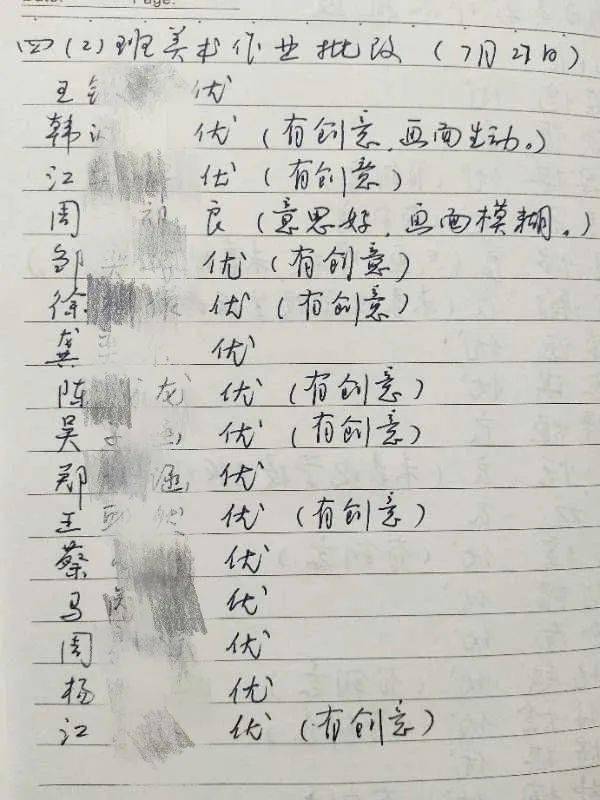 Page:
四(2)班美术作业批改(7月27日)
王 优
韩 优(有创意,画面生动。)
江 优(有创意)
周 良(意思好,画面模糊。)
邹 优(有创意)
徐 优(有创意)
龚 优
陈 龙 优(有创意)
吴 优(有创意)
郑 涵 优
王 优(有创意)
蔡 优
马 优
周 优
杨 优
江 优(有创意)